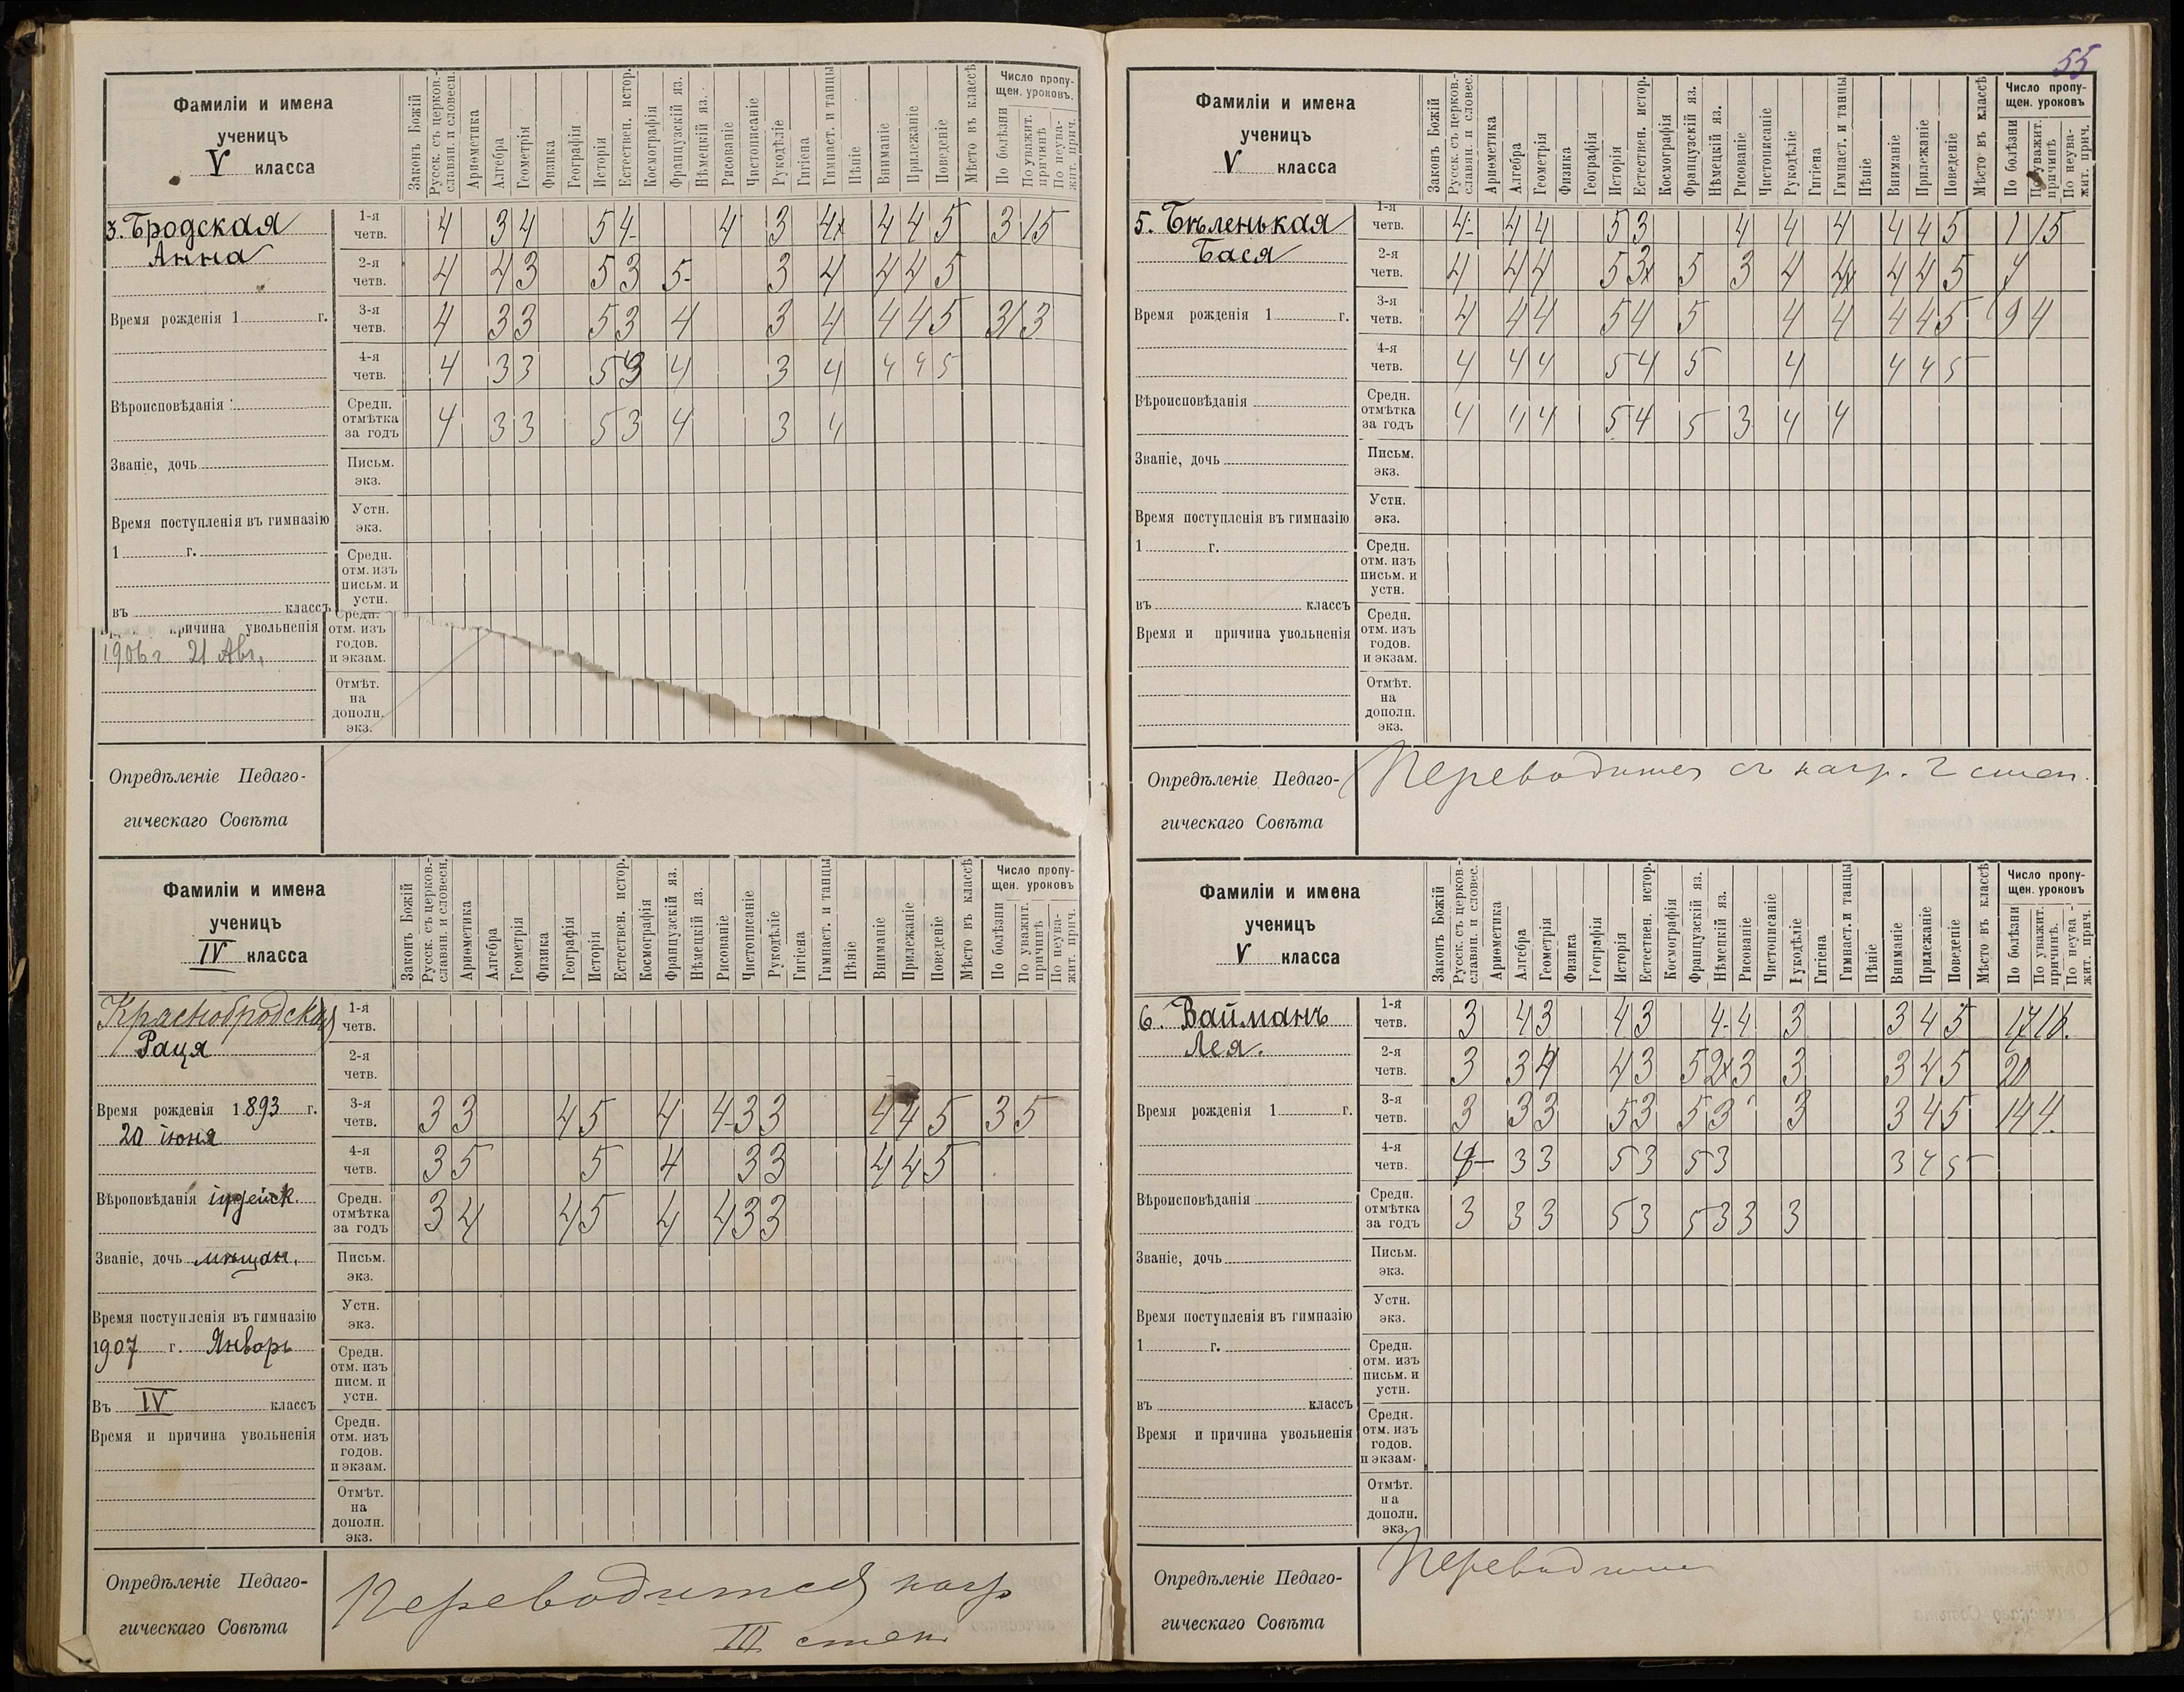 55
Фамиліи и имена
ученицъ
V класса
Законъ Божій
Русск. съ церков.-
славян. и словесн.
Ариѳметика
Алгебра
Геометрія
Физика
Географія
Исторія
Естествен. истор.
Космографія
Французскій яз.
Нѣмецкій яз.
Рисованіе
Чистописаніе
Рукодѣліе
Гигіена
Гимнаст. и танцы
Пѣніе
Вниманіе
Прилежаніе
Поведеніе
Мѣсто въ классѣ
Число пропу-
щен. уроковъ.
По болѣзни
По уважит.
причинѣ
По неува-
жит. прич.
3. Бродская
Анна
1-я четв. 4 3 4 5 4- 4 3 4x 4 4 5 3 15
2-я четв. 4 4 3 5 3 5- 3 4 4 4 5
Время рожденія 1 г.
3-я четв. 4 3 3 5 3 4 3 4 4 4 5 31 3
4-я четв. 4 3 3 5 3 4 3 4 4 4 5
Вѣроисповѣданія
Средн. отмѣтка за годъ 4 3 3 5 3 4 3 4
Званіе, дочь
Письм. экз.
Устн. экз.
Время поступленія въ гимназію
1 г.
Средн. отм. изъ письм. и устн.
въ классъ
причина увольненія
1906 г 21 Авг.
Средн. отм. изъ годов. и экзам.
Отмѣт. на дополн. экз.
Опредѣленіе Педаго-
гическаго Совѣта
Фамиліи и имена
ученицъ
IV класса
Законъ Божій
Русск. съ церков.-
славян. и словесн.
Ариѳметика
Алгебра
Геометрія
Физика
Географія
Исторія
Естествен. истор.
Космографія
Французскій яз.
Нѣмецкій яз.
Рисованіе
Чистописаніе
Рукодѣліе
Гигіена
Гимнаст. и танцы
Пѣніе
Вниманіе
Прилежаніе
Поведеніе
Мѣсто въ классѣ
Число пропу-
щен. уроковъ
По болѣзни
По уважит.
причинѣ
По неува-
жит. прич.
Краснобродская
Раця
1-я четв.
2-я четв.
Время рожденія 1893 г.
20 іюня
3-я четв. 3 3 4 5 4 4 3 3 4 4 5 3 5
4-я четв. 3 5 5 4 3 3 4 4 5
Вѣроповѣданія іудейск.
Средн. отмѣтка за годъ 3 4 4 5 4 4 3 3
Званіе, дочь мѣщан.
Письм. экз.
Устн. экз.
Время поступленія въ гимназію
1907 г. Январь
Средн. отм. изъ писм. и устн.
Въ IV классъ
Время и причина увольненія
Средн. отм. изъ годов. и экзам.
Отмѣт. на дополн. экз.
Опредѣленіе Педаго-
гическаго Совѣта
Переводится нагр
III степ
Фамиліи и имена
ученицъ
V класса
Законъ Божій
Русск. съ церков.-
славян. и словес.
Ариѳметика
Алгебра
Геометрія
Физика
Географія
Исторія
Естествен. истор.
Космографія
Французскій яз.
Нѣмецкій яз.
Рисованіе
Чистописаніе
Рукодѣліе
Гигіена
Гимнаст. и танцы
Пѣніе
Вниманіе
Прилежаніе
Поведеніе
Мѣсто въ классѣ
Число пропу-
щен. уроковъ
По болѣзни
По уважит.
причинѣ
По неува-
жит. прич.
5. Бѣленькая
Бася
1-я четв. 4- 4 4 5 3 4 4 4 4 4 5 1 15
2-я четв. 4 4 4 5 3x 5 3 4 4x 4 4 5
Время рожденія 1 г.
3-я четв. 4 4 4 5 4 5 4 4 4 4 5 9 4
4-я четв. 4 4 4 5 4 5 4 4 4 5
Вѣроисповѣданія
Средн. отмѣтка за годъ 4 4 4 5 4 5 3 4 4
Званіе, дочь
Письм. экз.
Устн. экз.
Время поступленія въ гимназію
1 г.
Средн. отм. изъ письм. и устн.
въ классъ
Время и причина увольненія
Средн. отм. изъ годов. и экзам.
Отмѣт. на дополн. экз.
Опредѣленіе Педаго-
гическаго Совѣта
Переводится съ нагр. 2 степ.
Фамиліи и имена
ученицъ
V класса
Законъ Божій
Русск. съ церков.-
славян. и словес.
Ариѳметика
Алгебра
Геометрія
Физика
Географія
Исторія
Естествен. истор.
Космографія
Французскій яз.
Нѣмецкій яз.
Рисованіе
Чистописаніе
Рукодѣліе
Гигіена
Гимнаст. и танцы
Пѣніе
Вниманіе
Прилежаніе
Поведеніе
Мѣсто въ классѣ
Число пропу-
щен. уроковъ
По болѣзни
По уважит.
причинѣ.
По неува-
жит. прич.
6. Вайманъ
Лея.
1-я четв. 3 4 3 4 3 4- 4 3 3 4 5 17 18.
2-я четв. 3 3 4 4 3 5 2x 3 3 3 4 5 20
Время рожденія 1 г.
3-я четв. 3 3 3 5 3 5 3 3 3 4 5 14 4.
4-я четв. 3 3 5 3 5 3 3 4 5
Вѣроисповѣданія
Средн. отмѣтка за годъ 3 3 3 5 3 5 3 3 3
Званіе, дочь
Письм. экз.
Устн. экз.
Время поступленія въ гимназію
1 г.
Средн. отм. изъ письм. и устн.
въ классъ
Время и причина увольненія
Средн. отм. изъ годов. и экзам.
Отмѣт. на дополн. экз.
Опредѣленіе Педаго-
гическаго Совѣта
Переводится